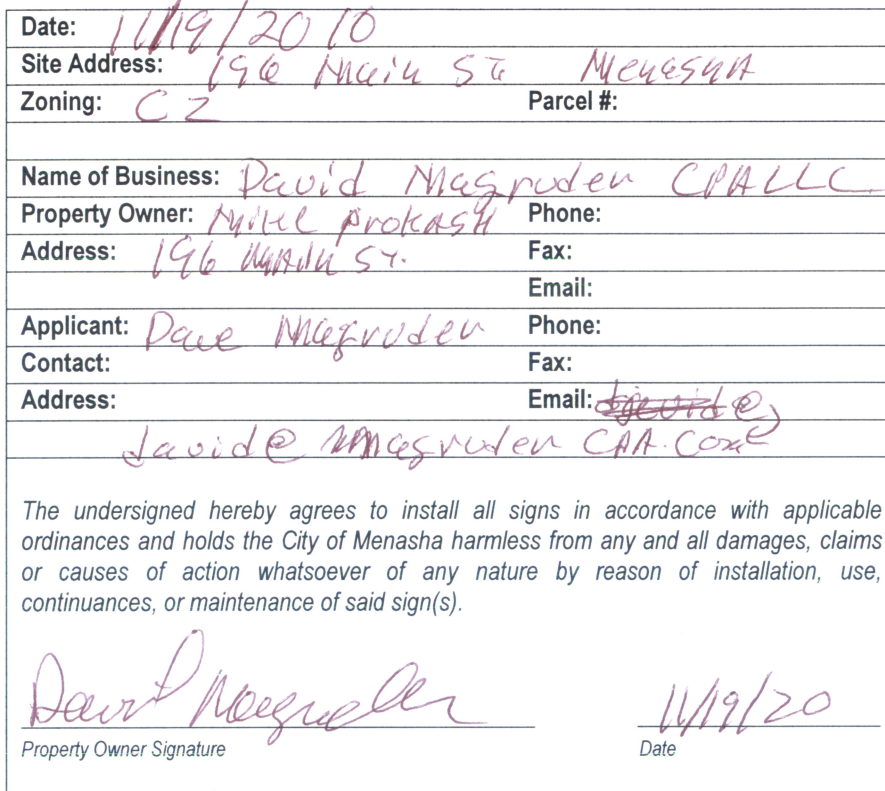 Date: 11/19/2010
Site Address: 196 Main St Menasha
Zoning: C2 Parcel #:
Name of Business: David Magruder CPA LLC
Property Owner: Mike Prokash Phone:
Address: 196 Main St. Fax:
Email:
Applicant: Dave Magruder Phone:
Contact: Fax:
Address: Email: david@
david@magruderCPA.com
The undersigned hereby agrees to install all signs in accordance with applicable
ordinances and holds the City of Menasha harmless from any and all damages, claims
or causes of action whatsoever of any nature by reason of installation, use,
continuances, or maintenance of said sign(s).
David Magruder 11/19/20
Property Owner Signature Date